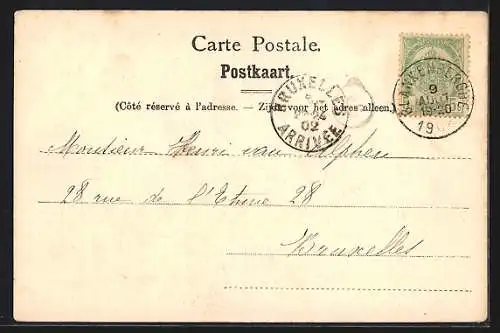 Carte Postale.
Postkaart.
(Côté réservé à l'adresse. — Zijde voor het adres alleen.)
BRUXELLES
02
ARRIVÉE
BLANKENBERGHE
9
AOUT
19
Monsieur Henri van Alphen
28 rue de l'Etuve 28
Bruxelles